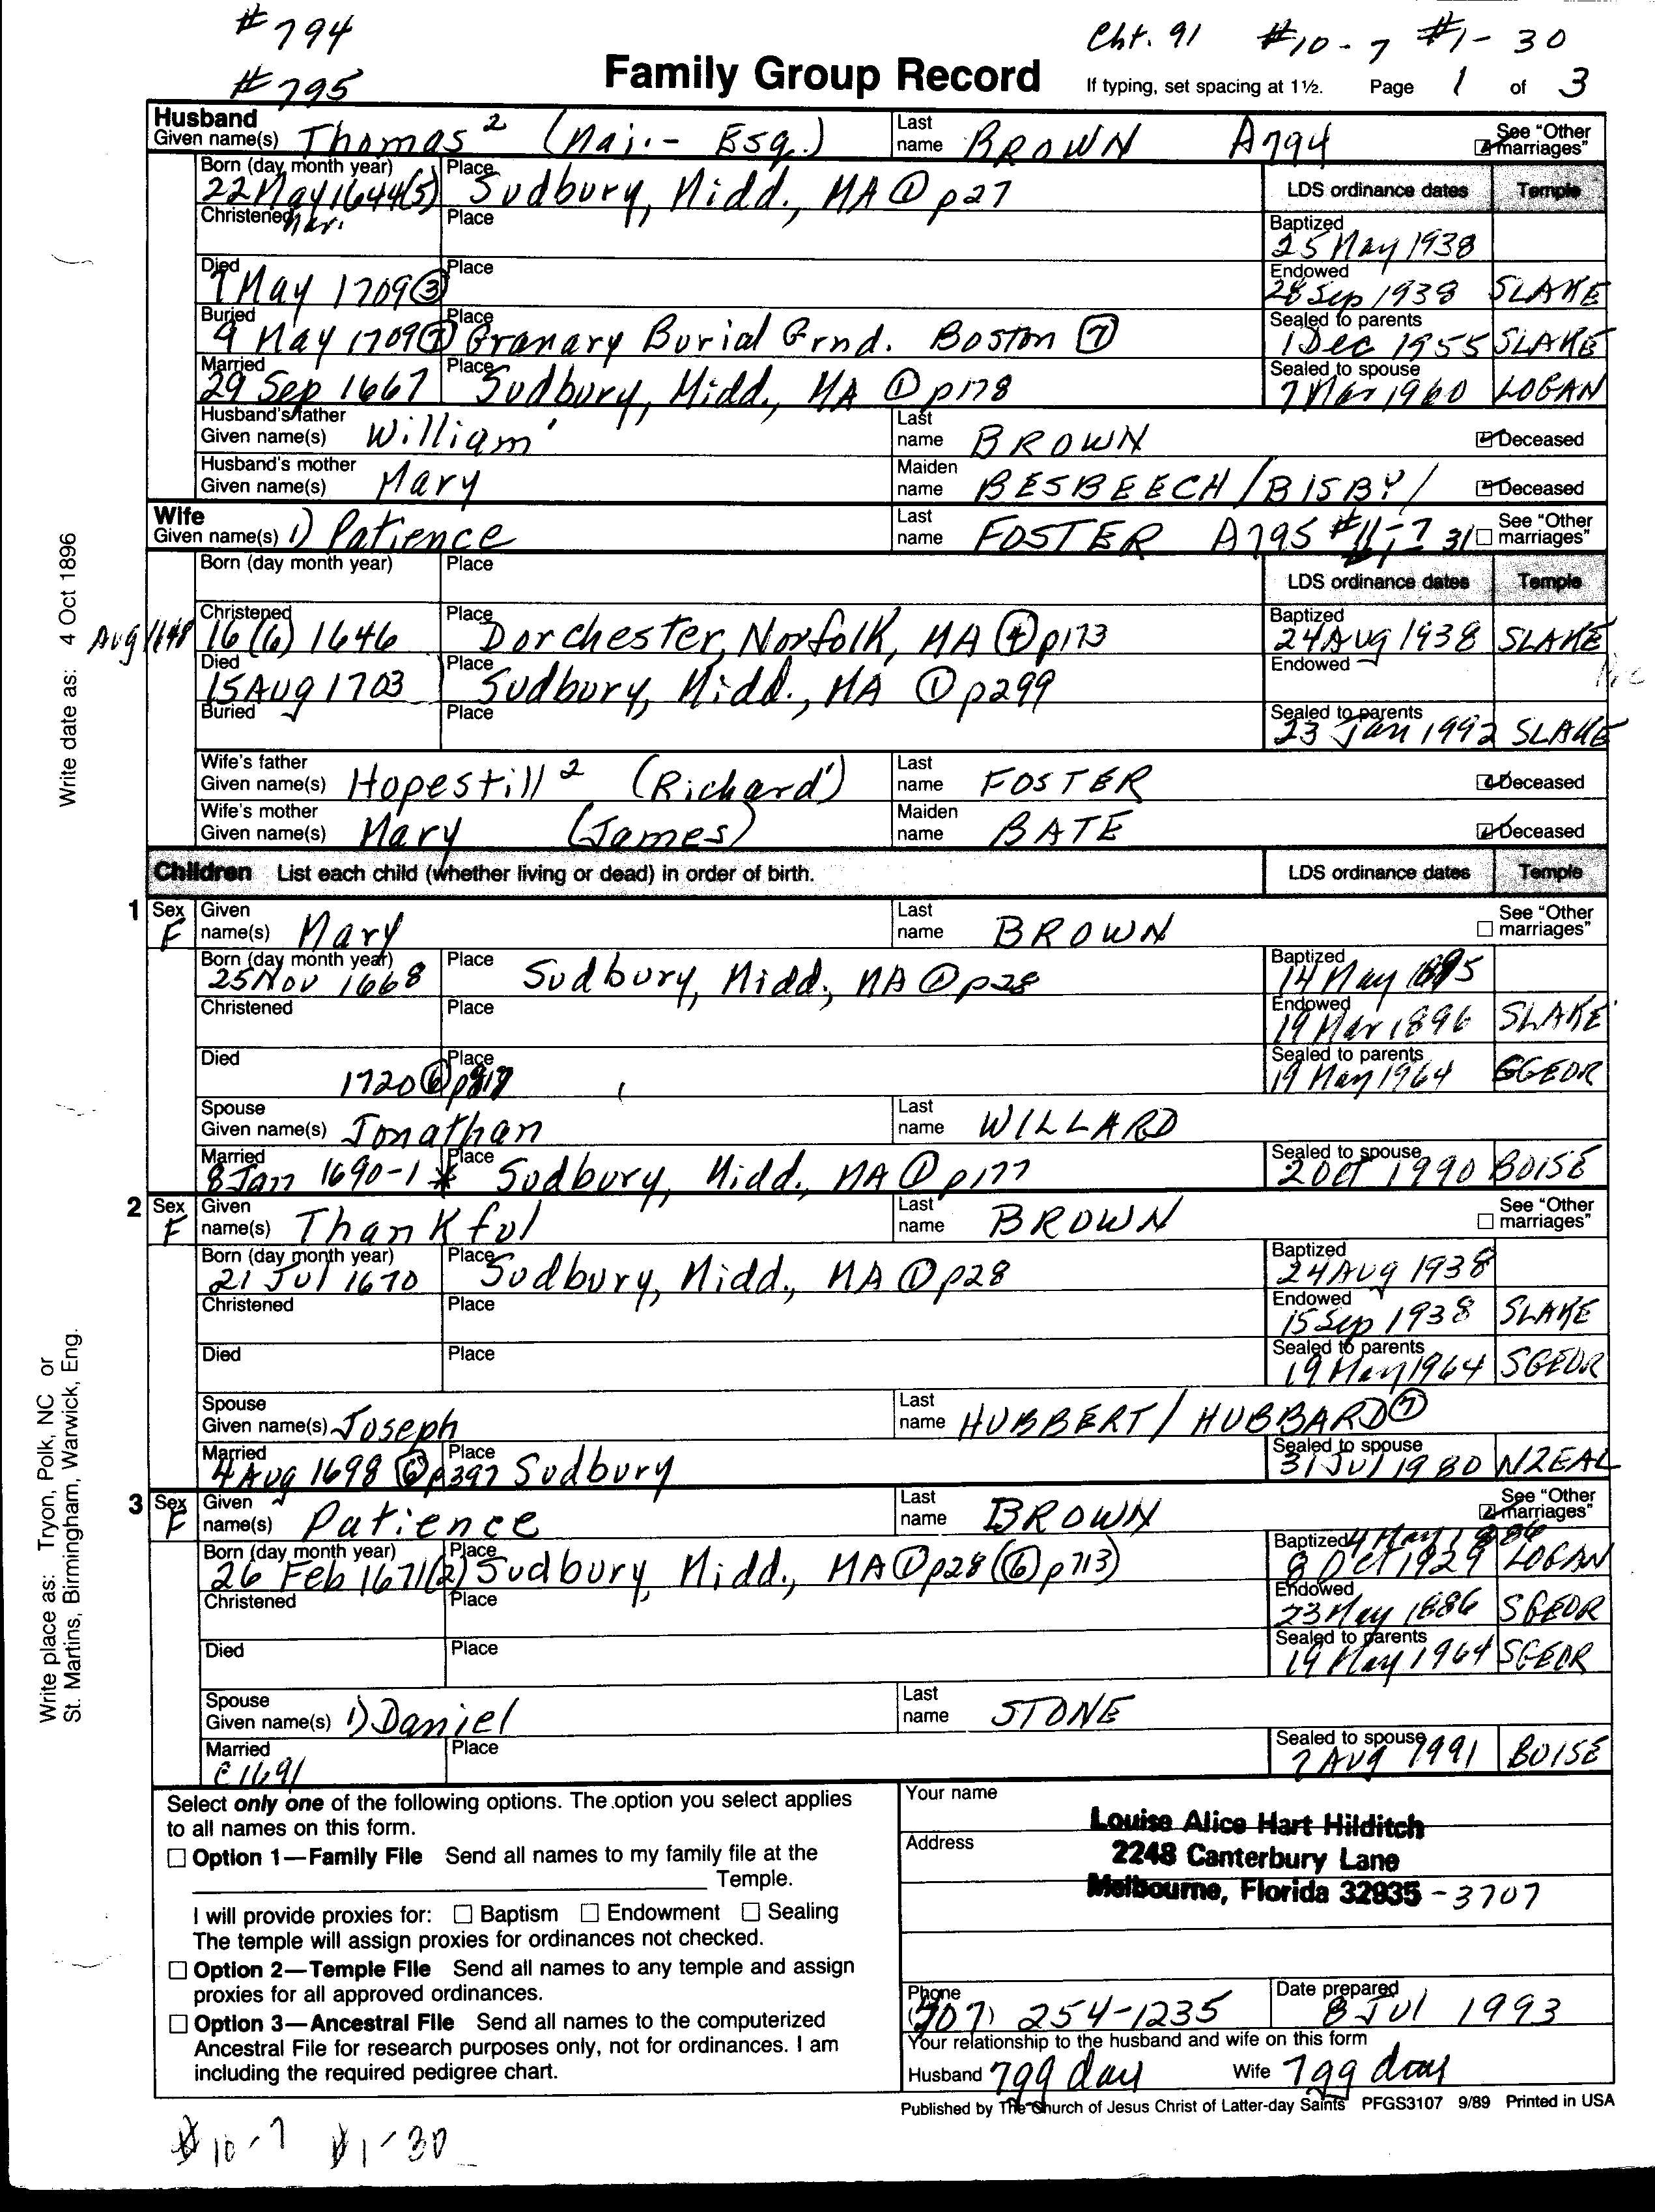 #794
Cht. 91 #10-7 #1-30
#795
Family Group Record
If typing, set spacing at 1½. Page 1 of 3
Husband
Given name(s) Thomas² (Maj.- Esq.) Last name BROWN A794 See "Other marriages"
Born (day month year) 22 May 1644(5) Place Sudbury, Midd., MA ① p27 LDS ordinance dates Temple
Christened Mar. Place Baptized 25 May 1938
Died 7 May 1709 ③ Place Endowed 28 Sep 1938 SLAKE
Buried 9 May 1709 ⑦ Place Granary Burial Grnd. Boston ⑦ Sealed to parents 1 Dec 1955 SLAKE
Married 29 Sep 1667 Place Sudbury, Midd., MA ① p178 Sealed to spouse 7 Mar 1960 LOGAN
Husband's father Given name(s) William' Last name BROWN Deceased
Husband's mother Given name(s) Mary Maiden name BESBEECH /BISBY/ Deceased
Wife
Given name(s) 1) Patience Last name FOSTER A795 #11-7 31 See "Other marriages"
Born (day month year) Place LDS ordinance dates Temple
Aug 1648 Christened 16 (6) 1646 Place Dorchester, Norfolk, MA ④ p173 Baptized 24 Aug 1938 SLAKE
Died 15 Aug 1703 Place Sudbury, Midd., MA ① p299 Endowed
Buried Place Sealed to parents 23 Jan 1992 SLAKE
Wife's father Given name(s) Hopestill² (Richard') Last name FOSTER Deceased
Wife's mother Given name(s) Mary (James) Maiden name BATE Deceased
Children List each child (whether living or dead) in order of birth. LDS ordinance dates Temple
1 Sex F Given name(s) Mary Last name BROWN See "Other marriages"
Born (day month year) 25 Nov 1668 Place Sudbury, Midd., MA ① p28 Baptized 14 May 1895
Christened Place Endowed 19 Mar 1896 SLAKE
Died 1720 ⑥ Place Sealed to parents 19 May 1964 SGEOR
Spouse Given name(s) Jonathan Last name WILLARD
Married 8 Jan 1690-1 * Place Sudbury, Midd., MA ① p177 Sealed to spouse 2 Oct 1990 BOISE
2 Sex F Given name(s) Thankful Last name BROWN See "Other marriages"
Born (day month year) 21 Jul 1670 Place Sudbury, Midd., MA ① p28 Baptized 24 Aug 1938
Christened Place Endowed 15 Sep 1938 SLAKE
Died Place Sealed to parents 19 May 1964 SGEOR
Spouse Given name(s) Joseph Last name HUBBERT / HUBBARD ⑦
Married 4 Aug 1698 ⑥ p397 Place Sudbury Sealed to spouse 31 Jul 1980 NZEAL
3 Sex F Given name(s) Patience Last name BROWN See "Other marriages"
Born (day month year) 26 Feb 1671(2) Place Sudbury, Midd., MA ① p28 (⑥ p713) Baptized 4 May 1886 8 Oct 1929 LOGAN
Christened Place Endowed 23 May 1886 SGEOR
Died Place Sealed to parents 19 May 1964 SGEOR
Spouse Given name(s) 1) Daniel Last name STONE
Married c1691 Place Sealed to spouse 7 Aug 1991 BOISE
Select only one of the following options. The option you select applies
to all names on this form.
Option 1—Family File Send all names to my family file at the
Temple.
I will provide proxies for: Baptism Endowment Sealing
The temple will assign proxies for ordinances not checked.
Option 2—Temple File Send all names to any temple and assign
proxies for all approved ordinances.
Option 3—Ancestral File Send all names to the computerized
Ancestral File for research purposes only, not for ordinances. I am
including the required pedigree chart.
Your name Louise Alice Hart Hilditch
Address 2248 Canterbury Lane
Melbourne, Florida 32935 -3707
Phone (407) 254-1235 Date prepared 8 Jul 1993
Your relationship to the husband and wife on this form
Husband 7gg dau Wife 7gg dau
Published by The Church of Jesus Christ of Latter-day Saints PFGS3107 9/89 Printed in USA
#10-7 #1-30
Write date as: 4 Oct 1896
Write place as: Tryon, Polk, NC or
St. Martins, Birmingham, Warwick, Eng.